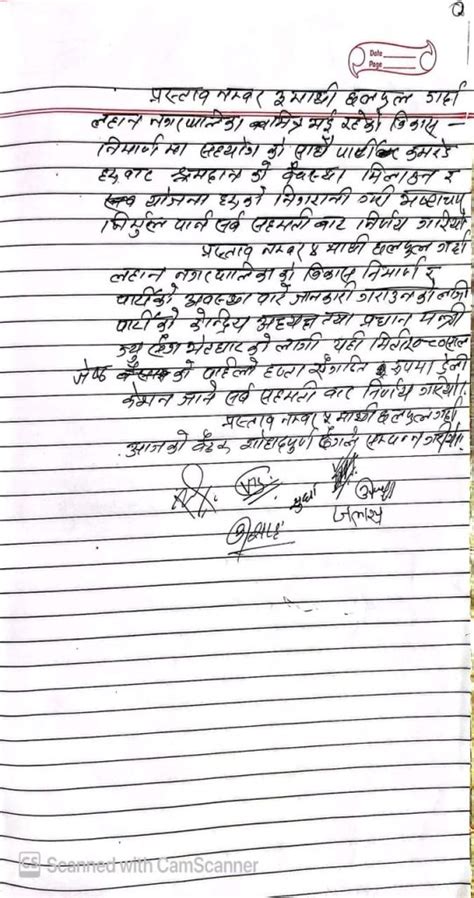 Date
Page
प्रस्ताव नम्बर ३ माथी छलफल गर्दा
लहान नगरपालिका भित्र भई रहेको विकास –
निर्माण मा सहयोग को साथै पार्टीका कमरेड
हरु बाट श्रमदान को व्यवस्था मिलाउन र
योजना हरुको निगरानी गरी भ्रष्टाचार
निर्मुल पार्न सर्व सहमती बाट निर्णय गरियो
प्रस्ताव नम्बर ४ माथी छलफल गर्दा
लहान नगरपालिका को विकास निर्माण र
पार्टीको अवस्था बारे जानकारी गराउन को लागी
पार्टी को केन्द्रिय अध्यक्ष तथा प्रधान मन्त्री
भेटघाट को लागी यही मिति २०८० साल
जेष्ठ को पहिलो हप्ता संगठित रुपमा डेली
गेसन जाने सर्व सहमती बाट निर्णय गरियो।
प्रस्ताव नम्बर ५ माथी छलफल गर्दा
आजको बैठक सोहाद्रपुर्ण ढंगले सम्पन्न गरियो।
CS Scanned with CamScanner